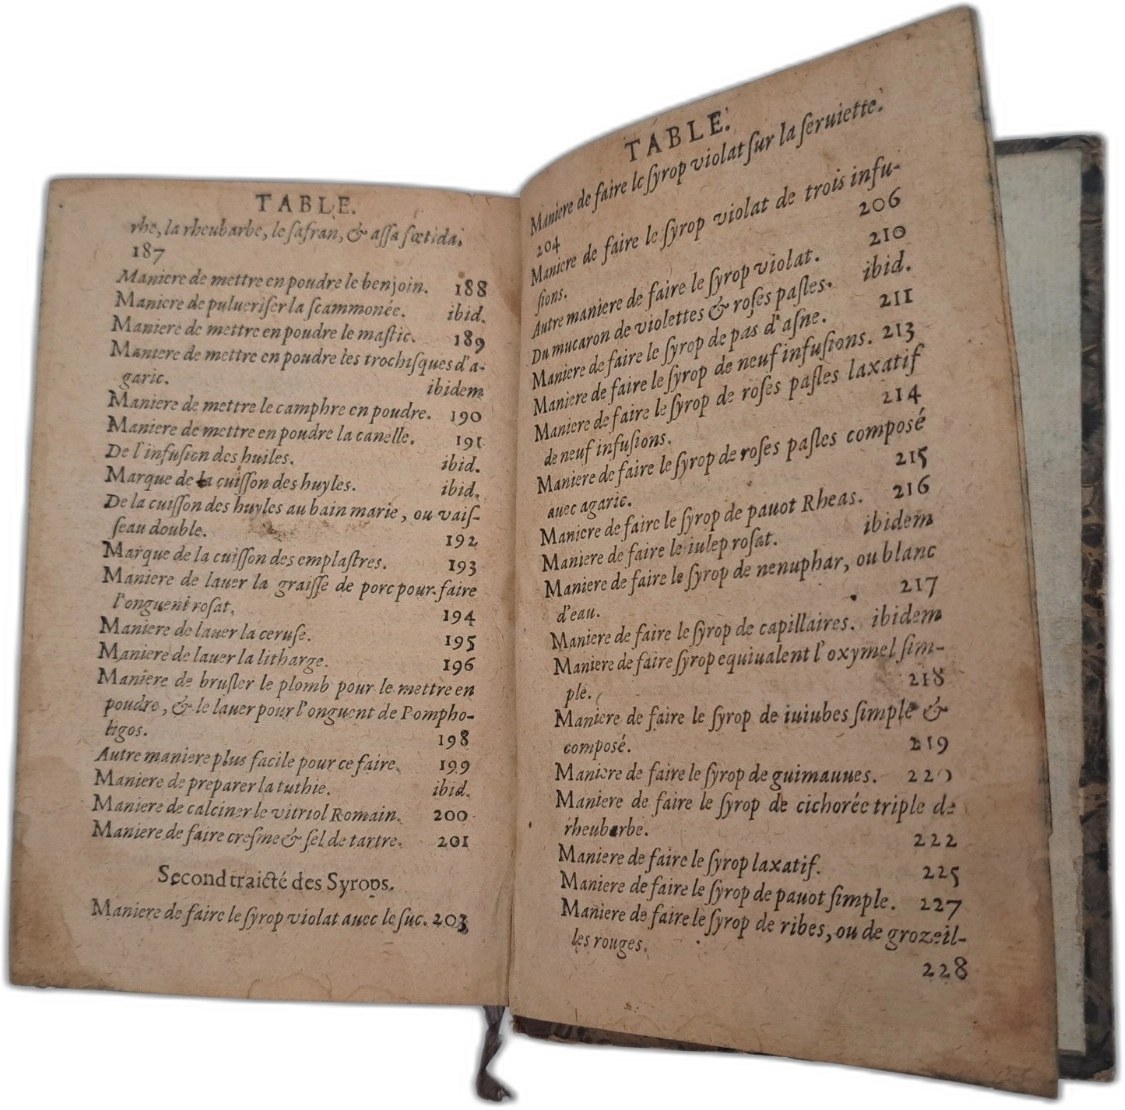 TABLE.
rhe, la rheubarbe, le ſafran, & aſſa fœtida,
187
Maniere de mettre en poudre le benjoin. 188
Maniere de puluerifer la ſcammonée. ibid.
Maniere de mettre en poudre le maſtic. 189
Maniere de mettre en poudre les trochiſques d'a-
garic. ibidem
Maniere de mettre le camphre en poudre. 190
Maniere de mettre en poudre la canelle. 191
De l'infuſion des huiles. ibid.
Marque de la cuiſſon des huyles. ibid.
De la cuiſſon des huyles au bain marie, ou vaiſ-
ſeau double. 192
Marque de la cuiſſon des emplaſtres. 193
Maniere de lauer la graiſſe de porc pour faire
l'onguent roſat. 194
Maniere de lauer la ceruſe. 195
Maniere de lauer la litharge. 196
Maniere de bruſler le plomb pour le mettre en
poudre, & le lauer pour l'onguent de Pompho-
ligos. 198
Autre maniere plus facile pour ce faire. 199
Maniere de preparer la tuthie. ibid.
Maniere de calciner le vitriol Romain. 200
Maniere de faire creſme & ſel de tartre. 201
Second traicté des Syrops.
Maniere de faire le ſyrop violat auec le ſuc. 203
TABLE.
Maniere de faire le ſyrop violat ſur la ſeruiette.
204
Maniere de faire le ſyrop violat de trois infu-
ſions. 206
Autre maniere de faire le ſyrop violat. 210
Du mucaron de violettes & roſes paſles. ibid.
Maniere de faire le ſyrop de pas d'aſne. 211
Maniere de faire le ſyrop de neuf infuſions. 213
Maniere de faire le ſyrop de roſes paſles laxatif
de neuf infuſions. 214
Maniere de faire le ſyrop de roſes paſles composé
auec agaric. 215
Maniere de faire le ſyrop de pauot Rheas. 216
Maniere de faire le iulep roſat. ibidem
Maniere de faire le ſyrop de nenuphar, ou blanc
d'eau. 217
Maniere de faire le ſyrop de capillaires. ibidem
Maniere de faire ſyrop equiualent l'oxymel ſim-
ple. 218
Maniere de faire le ſyrop de iuiubes ſimple &
composé. 219
Maniere de faire le ſyrop de guimauues. 220
Maniere de faire le ſyrop de cichorée triple de
rheubarbe. 222
Maniere de faire le ſyrop laxatif. 225
Maniere de faire le ſyrop de pauot ſimple. 227
Maniere de faire le ſyrop de ribes, ou de grozeil-
les rouges. 228